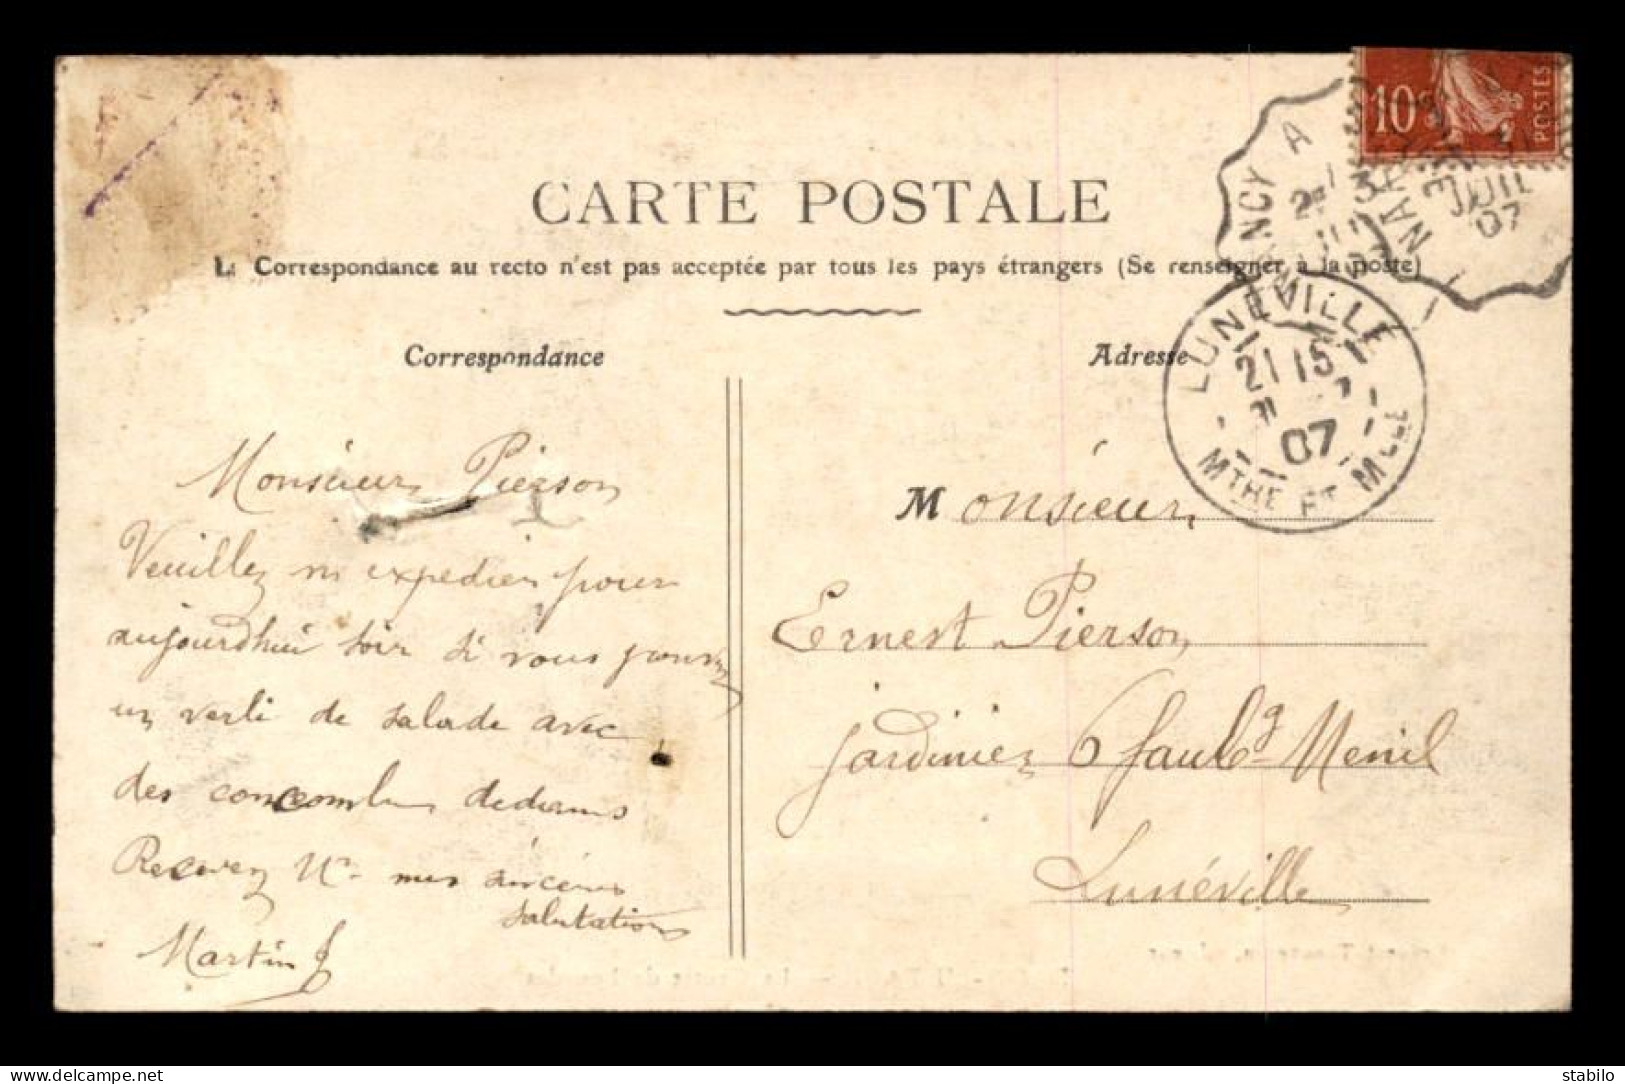 10c
POSTES
CARTE POSTALE
La Correspondance au recto n'est pas acceptée par tous les pays étrangers (Se renseigner à la poste)
NANCY A
JUIL
07
LUNEVILLE
21 15
07
MTHE ET MLLE
Correspondance
Adresse
Monsieur Pierson
Veuillez m expedier pour
aujourdhui soir si vous
un de salade avec
des dedans
Recevez Mr mes sincères
salutations
Martin
Monsieur
Ernest Pierson
jardinier 6 faubg Menil
Lunéville
stabilo